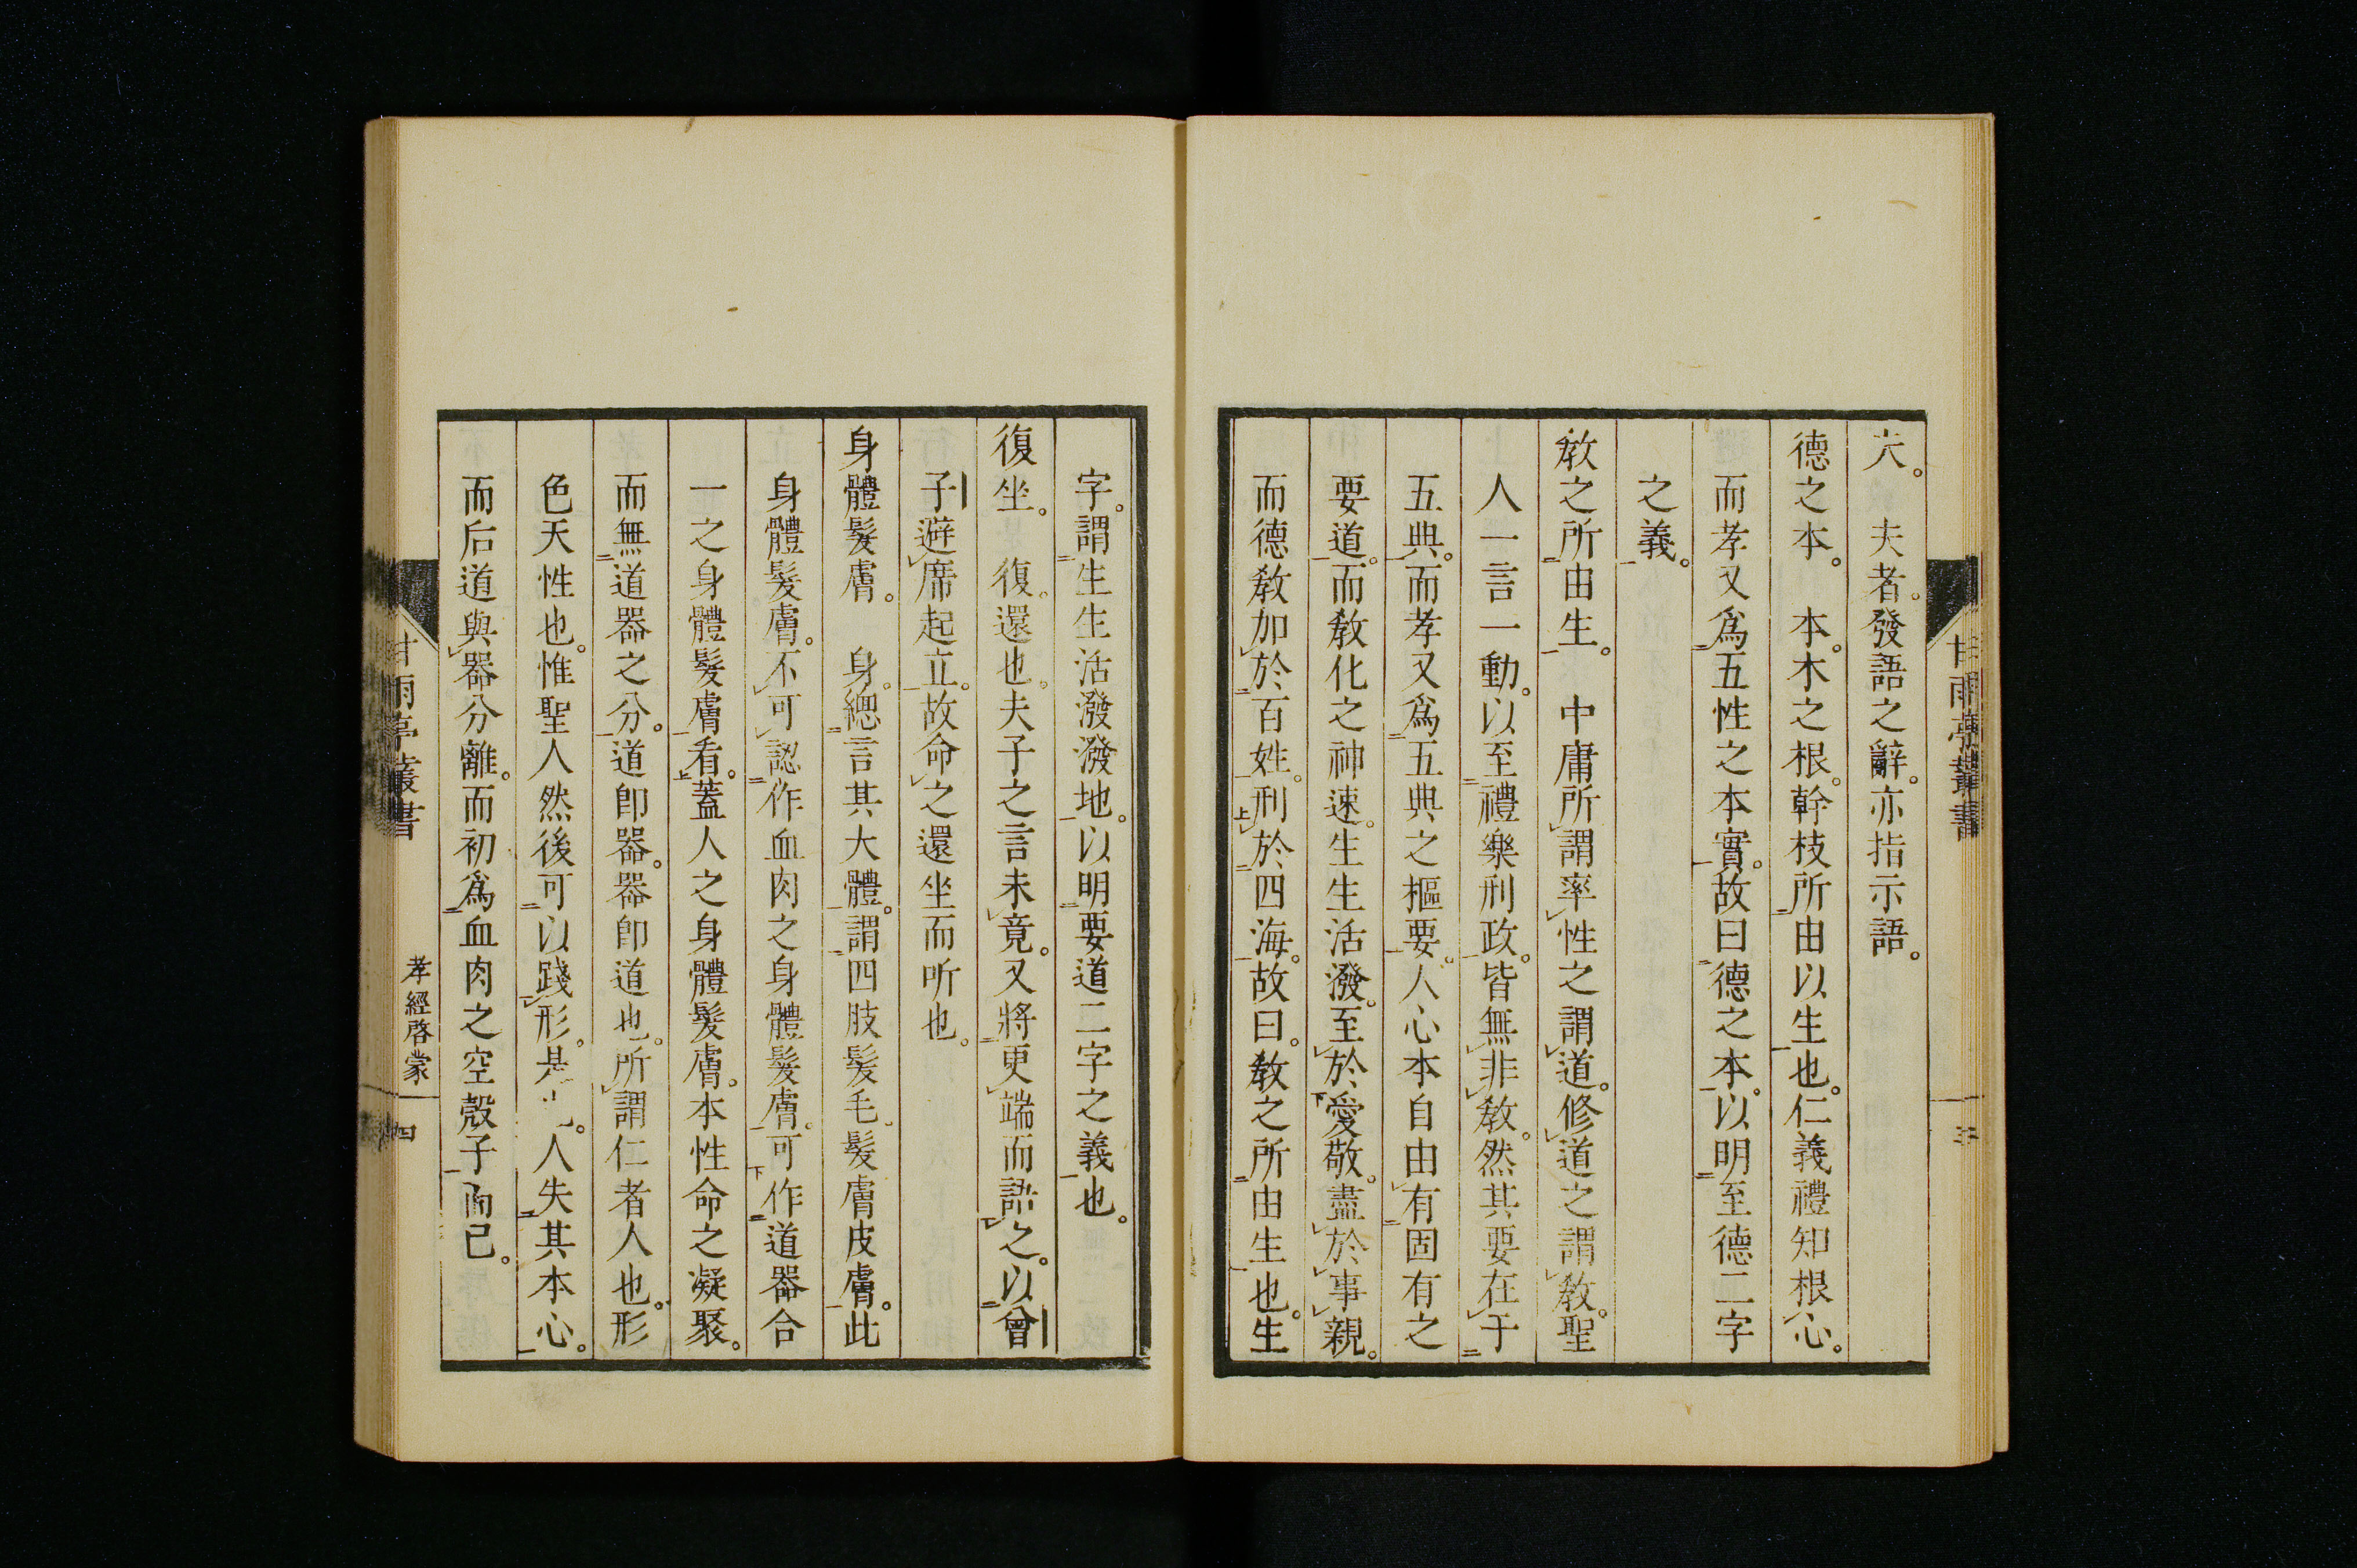 夫。夫者。發語之辭。亦指示語。
德之本。本。木之根。幹枝所由以生也。仁義禮知根心。
而孝又爲五性之本實。故曰德之本。以明至德二字
之義。
敎之所由生。中庸所謂率性之謂道。修道之謂敎。聖
人一言一動。以至禮樂刑政。皆無非敎。然其要在于
五典。而孝又爲五典之樞要。人心本自由有固有之
要道。而敎化之神速。生生活潑。至於愛敬。盡於事親。
而德敎加於百姓。刑於四海。故曰。敎之所由生也。生
甘雨亭叢書
三
字。謂生生活潑潑地。以明要道二字之義也。
復坐。復。還也。夫子之言未竟。又將更端而語之。以曾
子避席起立。故命之還坐而听也。
身體髮膚。身。總言其大體。謂四肢髮毛。髮膚皮膚。此
身體髮膚。不可認作血肉之身體髮膚。可作道器合
一之身體髮膚看。蓋人之身體髮膚。本性命之凝聚。
而無道器之分。道卽器。器卽道也。所謂仁者人也。形
色天性也。惟聖人然後可以踐形。是。人失其本心。
而后道與器分離。而初爲血肉之空殼子而已。
甘雨亭叢書
孝經啓蒙
四